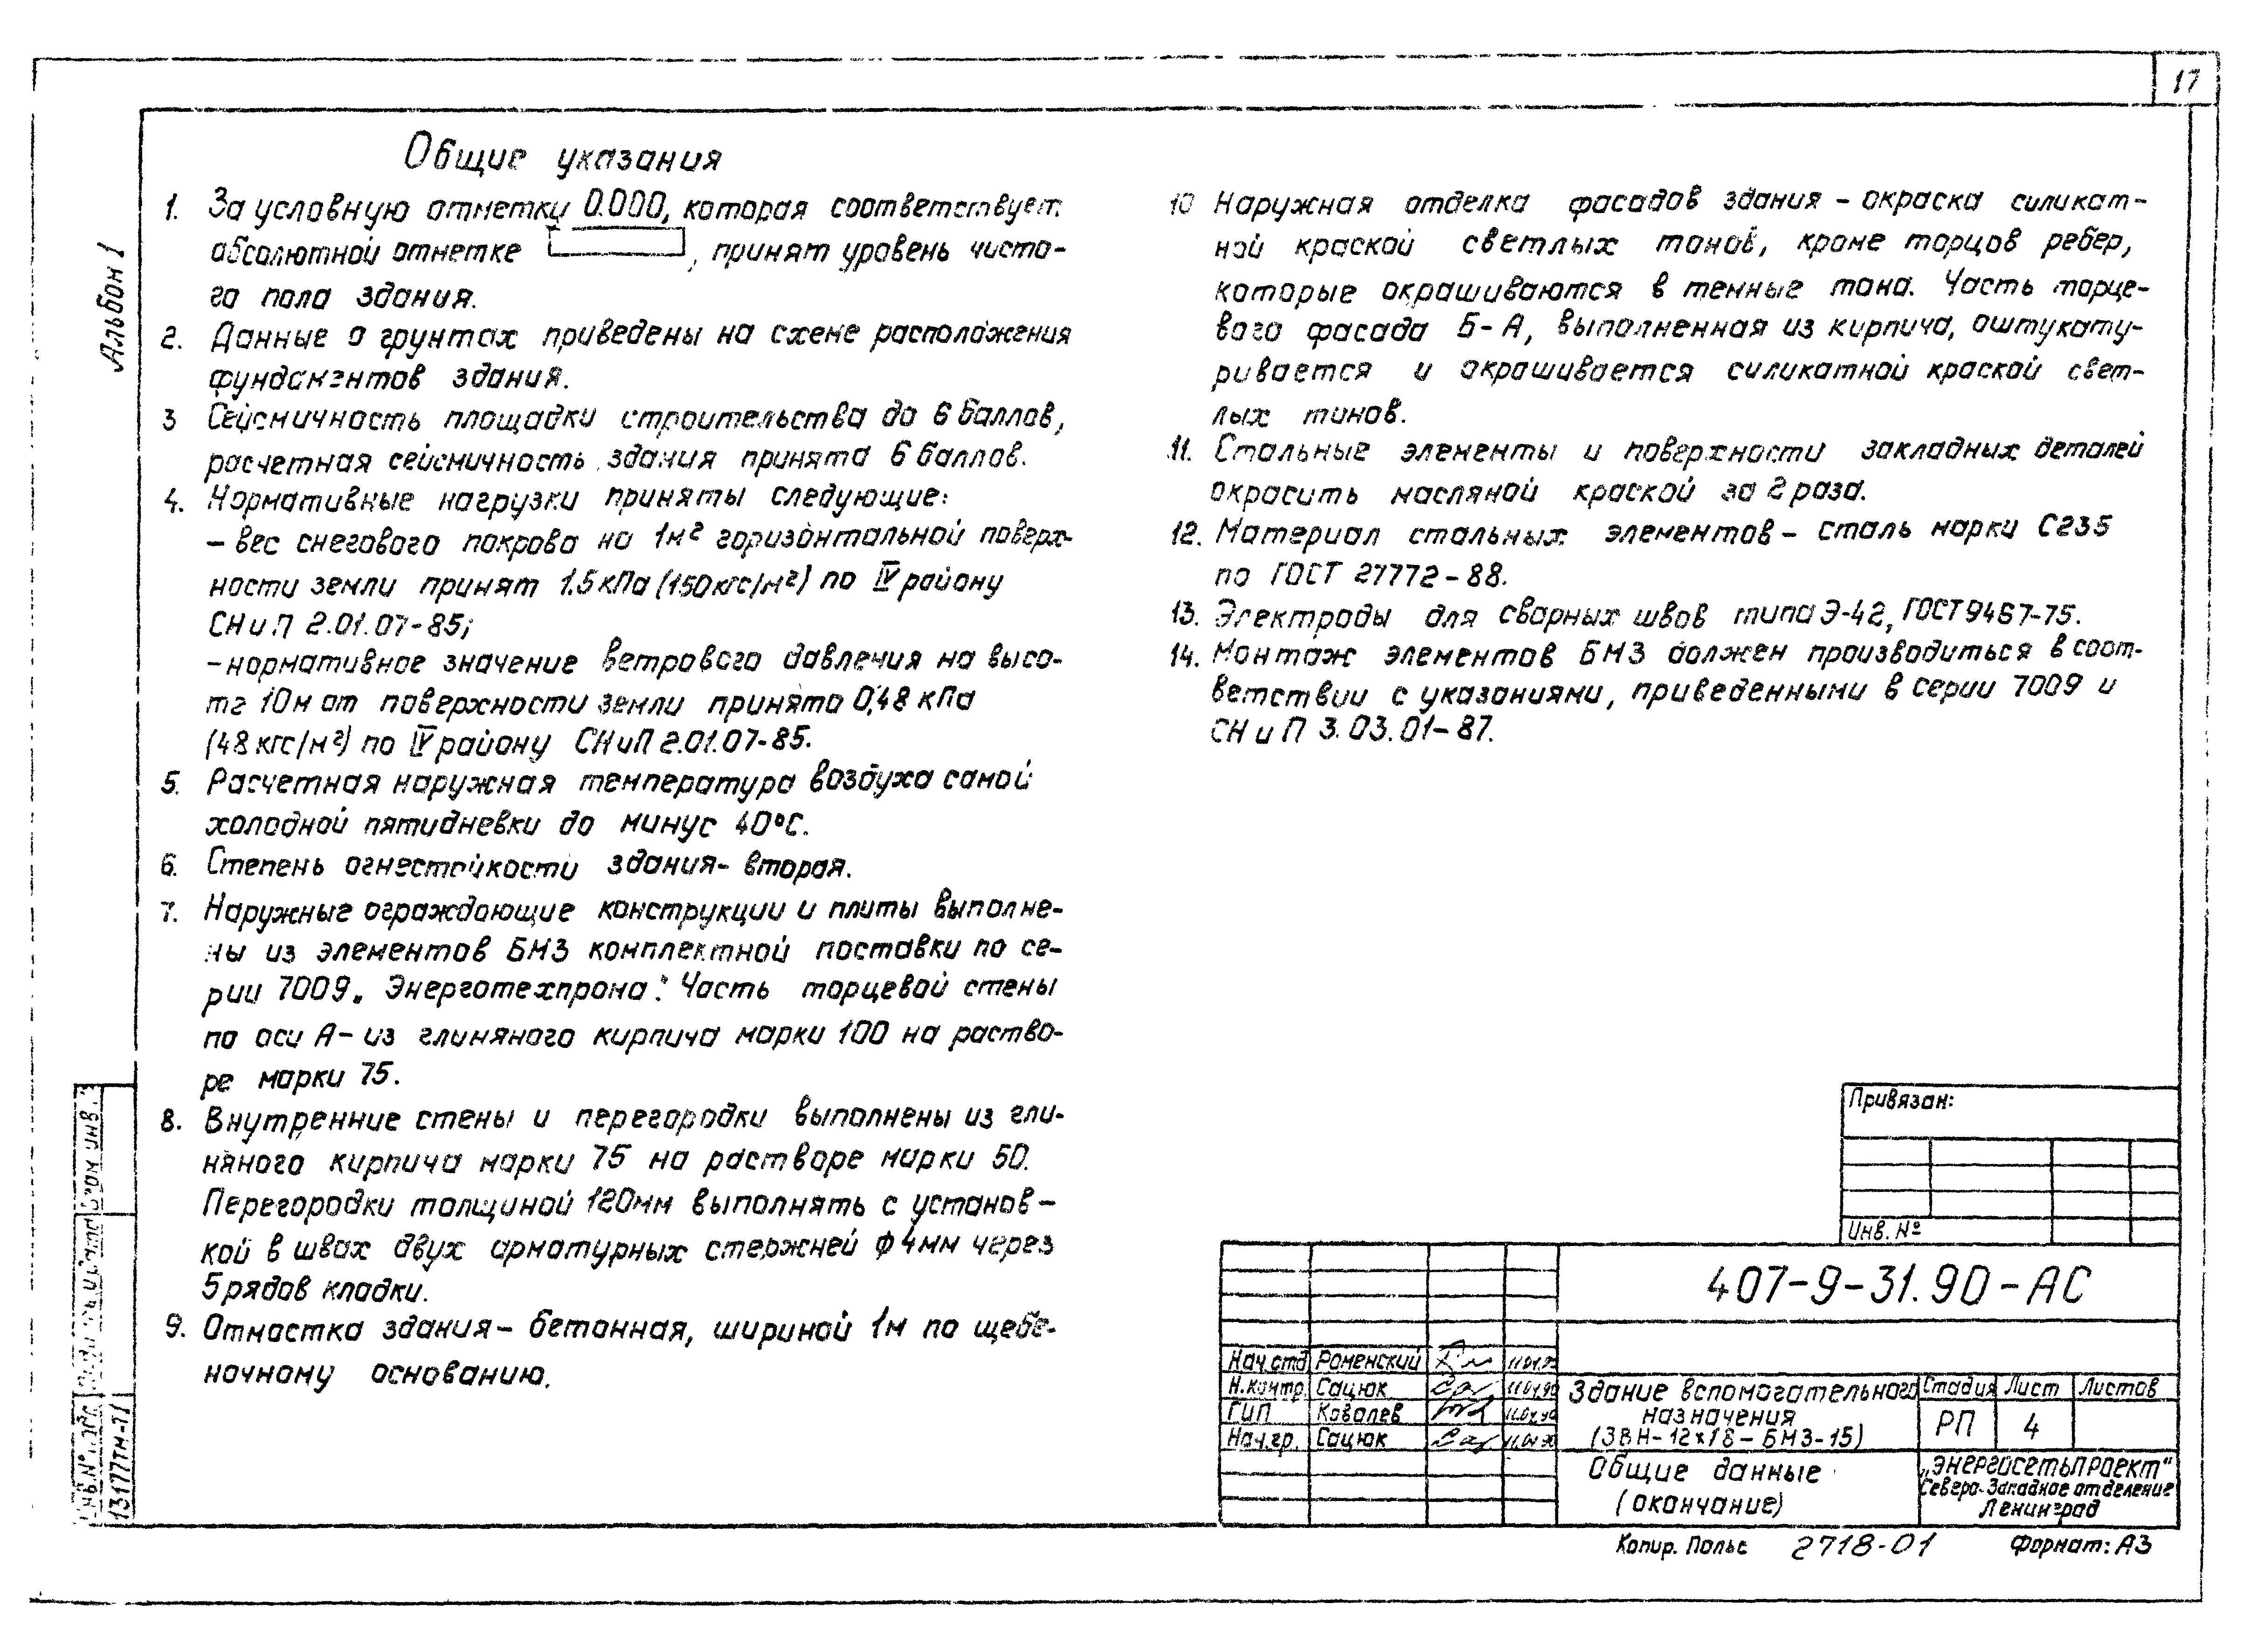 17
Альбом 1
Общие указания
1. За условную отметку 0.000, которая соответствует
абсолютной отметке , принят уровень чисто-
го пола здания.
2. Данные о грунтах приведены на схеме расположения
фундаментов здания.
3 Сейсмичность площадки строительства до 6 баллов,
расчетная сейсмичность здания принята 6 баллов.
4. Нормативные нагрузки приняты следующие:
- вес снегового покрова на 1м² горизонтальной поверх-
ности земли принят 1.5 кПа (150кгс/м²) по IV району
СНиП 2.01.07-85;
- нормативное значение ветрового давления на высо-
те 10м от поверхности земли принято 0,48 кПа
(48 кгс/м²) по IV району СНиП 2.01.07-85.
5. Расчетная наружная температура воздуха самой
холодной пятидневки до минус 40°С.
6. Степень огнестойкости здания- вторая.
7. Наружные ограждающие конструкции и плиты выполне-
ны из элементов БМЗ комплектной поставки по се-
рии 7009 „Энерготехпрома". Часть торцевой стены
по оси А- из глиняного кирпича марки 100 на раство-
ре марки 75.
8. Внутренние стены и перегородки выполнены из гли-
няного кирпича марки 75 на растворе марки 50.
Перегородки толщиной 120мм выполнять с установ-
кой в швах двух арматурных стержней ф4мм через
5 рядов кладки.
9. Отмостка здания- бетонная, шириной 1м по щебе-
ночному основанию.
10 Наружная отделка фасадов здания - окраска силикат-
ной краской светлых тонов, кроме торцов ребер,
которые окрашиваются в темные тона. Часть торце-
вого фасада Б-А, выполненная из кирпича, оштукату-
ривается и окрашивается силикатной краской свет-
лых тонов.
11. Стальные элементы и поверхности закладных деталей
окрасить масляной краской за 2 раза.
12. Материал стальных элементов- сталь марки С235
по ГОСТ 27772-88.
13. Электроды для сварных швов типа Э-42, ГОСТ 9467-75.
14. Монтаж элементов БМЗ должен производиться в соот-
ветствии с указаниями, приведенными в серии 7009 и
СНиП 3.03.01-87.
Привязан:
Инв. №
407-9-31.90-АС
Нач.отд Роменский
Н.контр. Сацюк
ГИП Ковалев
Нач.гр. Сацюк
Здание вспомогательного
назначения
(ЗВН-12х18-БМЗ-15)
Стадия Лист Листов
РП 4
Общие данные
(окончание)
„Энергосетьпроект"
Северо-Западное отделение
Ленинград
Копир. Польс 2718-01 Формат: А3
Взам инв. №
Инв.№ подл
13177тм-т1